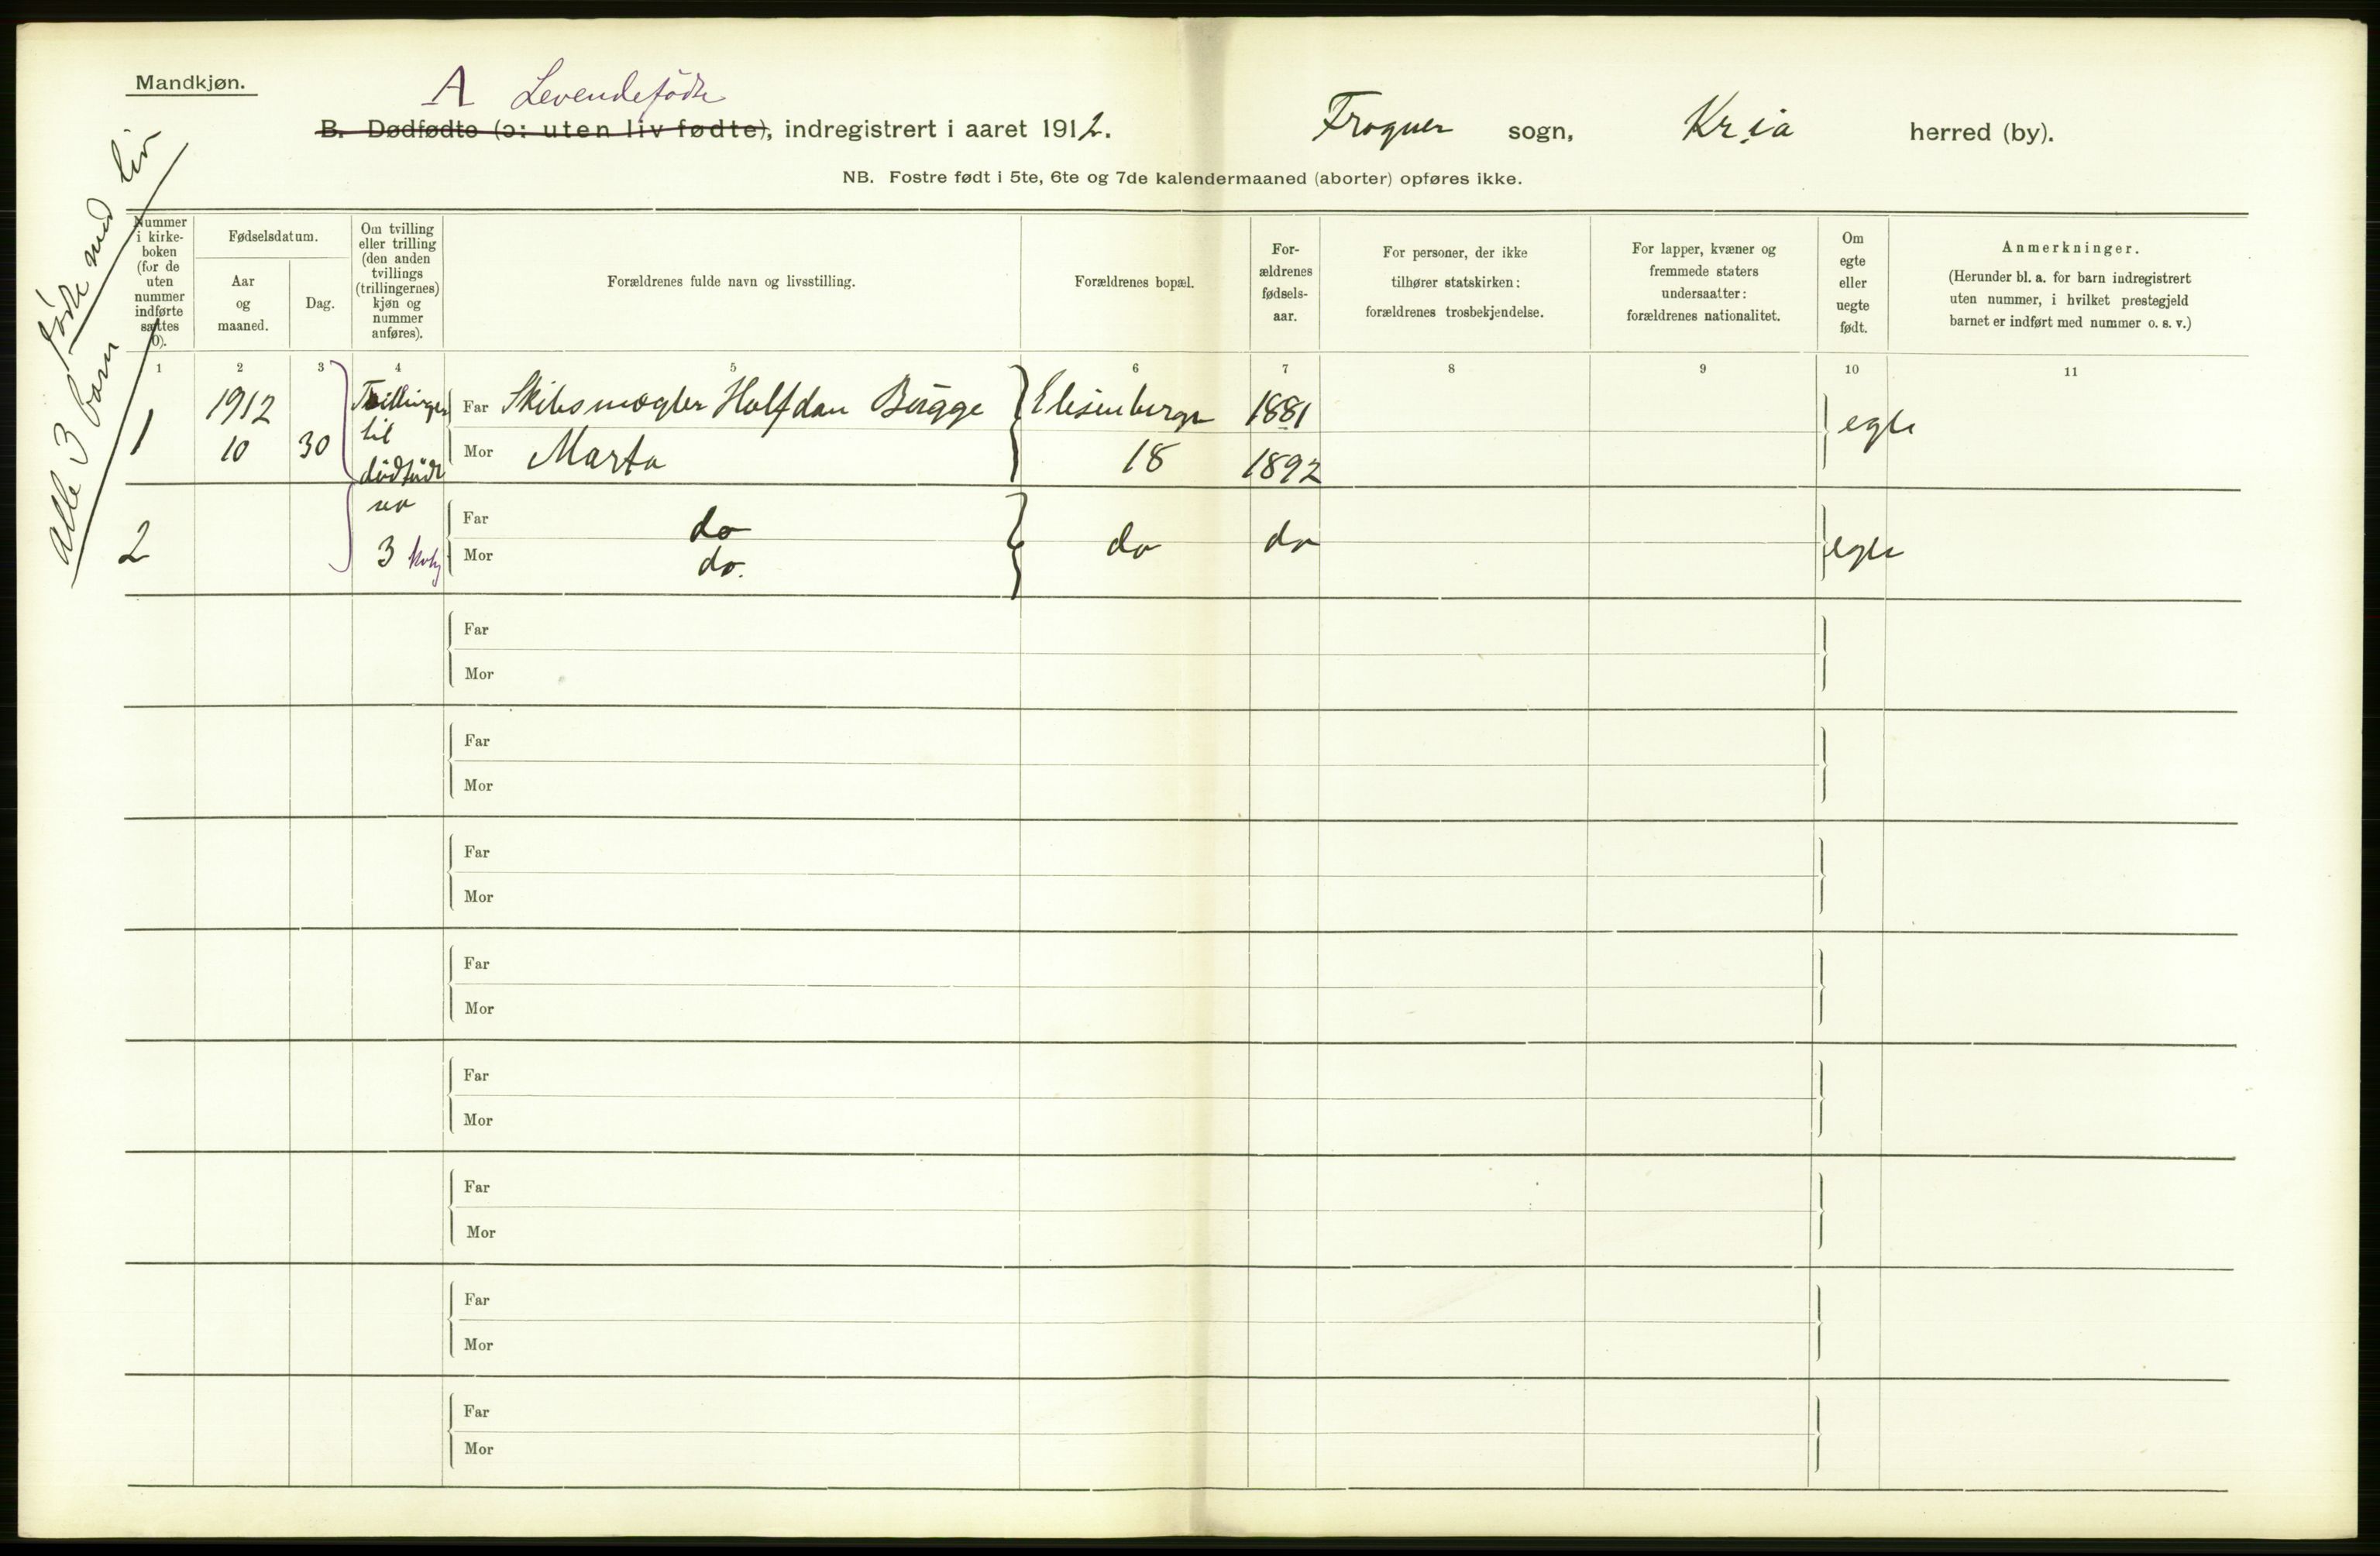 Mandkjøn.
A Levendefødte
B. Dødfødte (ɔ: uten liv fødte), indregistrert i aaret 1912. Frogner sogn, Kr.ia herred (by).
NB. Fostre født i 5te, 6te og 7de kalendermaaned (aborter) opføres ikke.
alle 3 barn fødte med liv
Nummer
i kirke-
boken
(for de
uten
nummer
indførte
sættes
0).
Fødselsdatum.
Aar
og
maaned.
Dag.
Om tvilling
eller trilling
(den anden
tvillings
(trillingernes)
kjøn og
nummer
anføres).
Forældrenes fulde navn og livsstilling.
Forældrenes bopæl.
For-
ældrenes
fødsels-
aar.
For personer, der ikke
tilhører statskirken:
forældrenes trosbekjendelse.
For lapper, kvæner og
fremmede staters
undersaatter:
forældrenes nationalitet.
Om
egte
eller
uegte
født.
Anmerkninger.
(Herunder bl. a. for barn indregistrert
uten nummer, i hvilket prestegjeld
barnet er indført med nummer o. s. v.)
1 2 3 4 5 6 7 8 9 10 11
1 1912 10 30
Trillinger
til
dødfødt
nr
3
Far Skibsmægler Halfdan Bugge
Mor Marta
Elisenbergv
18
1881
1892
egte
2
Far do
Mor do.
do
do
egte
Far
Mor
Far
Mor
Far
Mor
Far
Mor
Far
Mor
Far
Mor
Far
Mor
Far
Mor